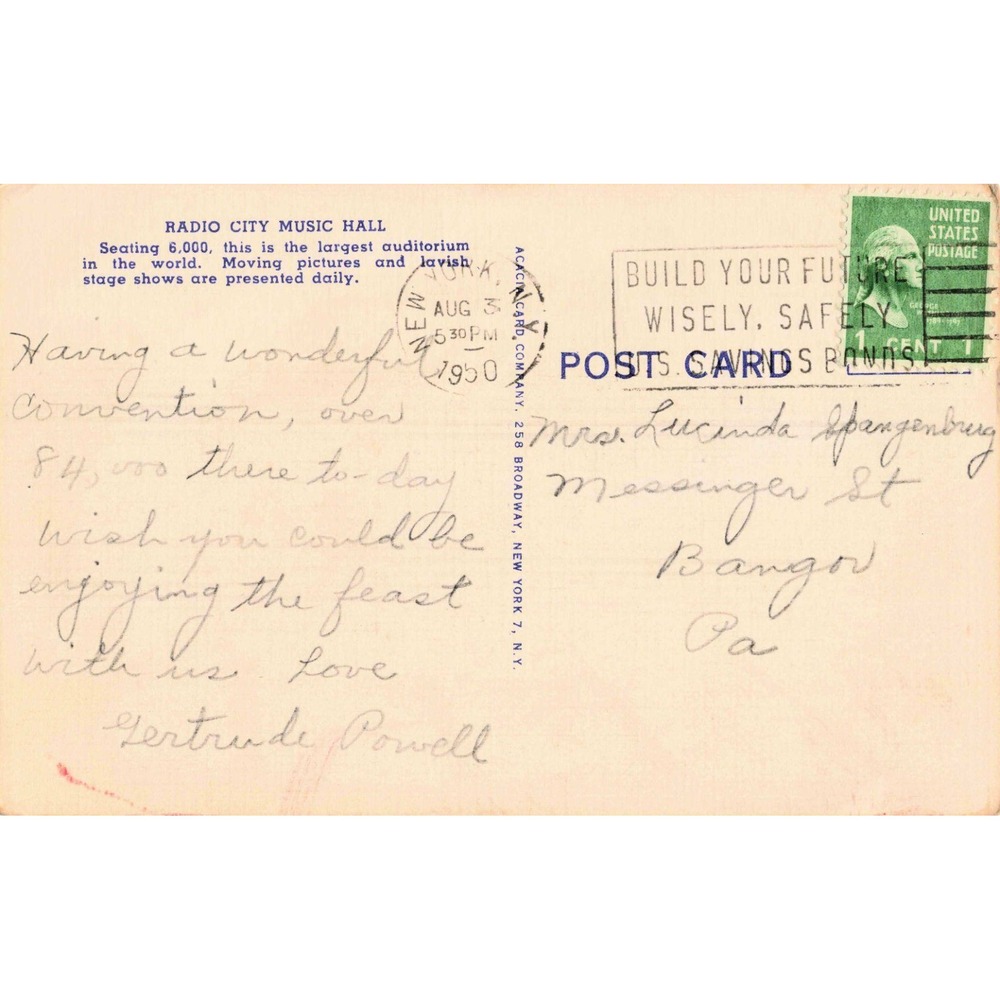 RADIO CITY MUSIC HALL
Seating 6,000, this is the largest auditorium
in the world. Moving pictures and lavish
stage shows are presented daily.
Having a wonderful
convention, over
84,000 there to-day
wish you could be
enjoying the feast
with us Love
Gertrude Powell
ACACIA CARD COMPANY. 258 BROADWAY, NEW YORK 7, N.Y.
NEW YORK, N.Y.
AUG 3
5 30 PM
1950
BUILD YOUR FUTURE
WISELY, SAFELY
U.S. SAVINGS BONDS
UNITED
STATES
POSTAGE
GEORGE
1 CENT 1
POST CARD
Mrs. Lucinda Spangenburg
Messinger St
Bangor
Pa